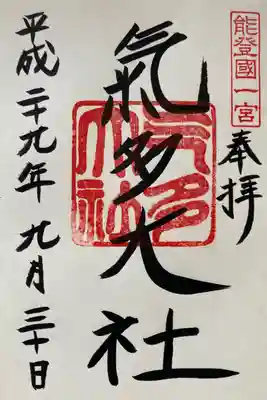 能登國一宮
奉拝
氣多大社
氣多大社
平成二十九年九月三十日